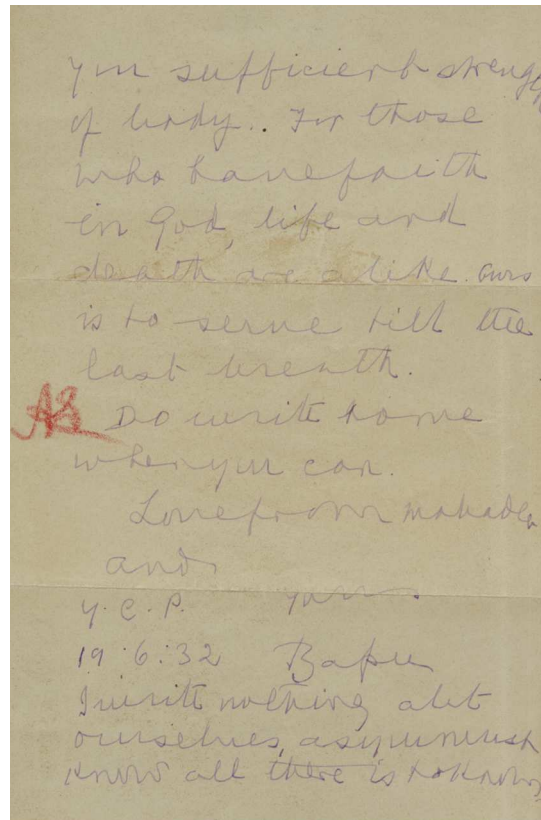 you sufficient strength
of body. For those
who have faith
in God, life and
death are alike. Ours
is to serve till the
last breath.
AB
Do write to me
when you can.
Love from Mahadev
and
Y. C. P. yours
19:6:32 Bapu
I write nothing abt
ourselves, as you must
know all there is to know.